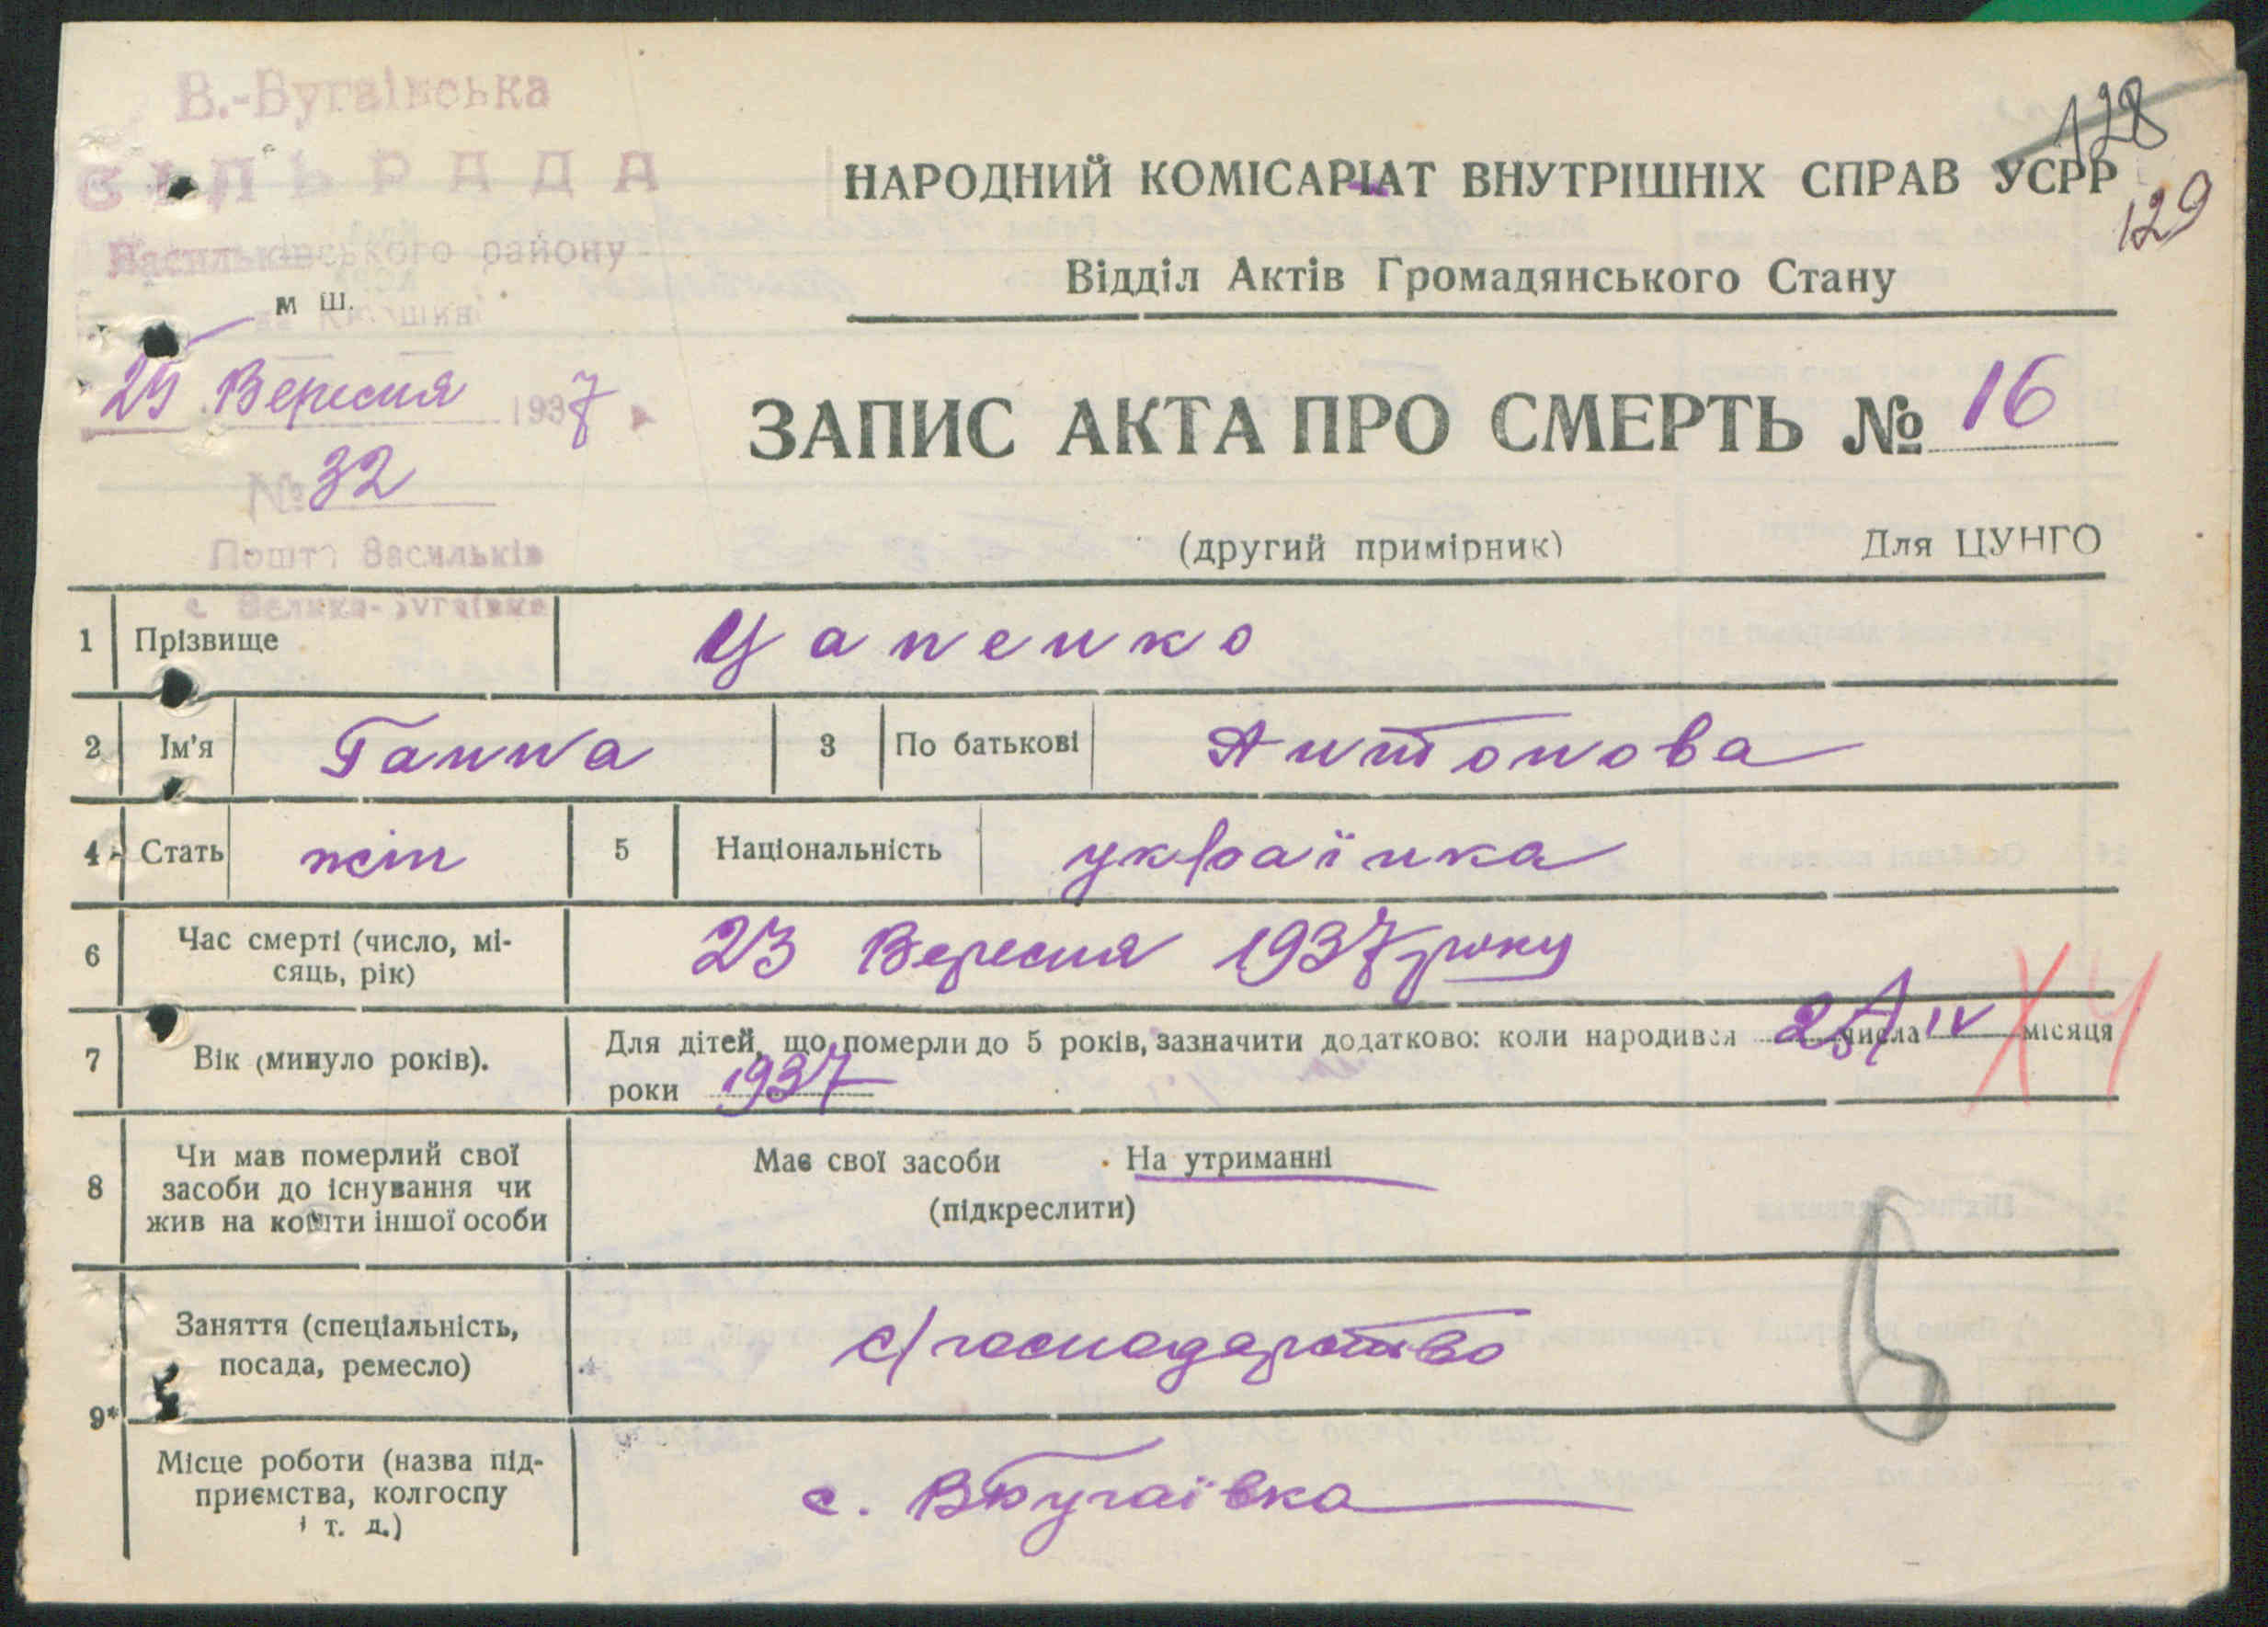 В.-Бугаївська
СІЛЬРАДА
Васильківського району
м Ш.
25 Вересня 1937
№ 32
Пошта Васильків
с Велика-Бугаївка
128
129
НАРОДНИЙ КОМІСАРІАТ ВНУТРІШНІХ СПРАВ УСРР
Відділ Актів Громадянського Стану
ЗАПИС АКТА ПРО СМЕРТЬ № 16
(другий примірник) Для ЦУНГО
1 Прізвище Цапенко
2 Ім'я Ганна 3 По батькові Антонова
4 Стать жін 5 Національність українка
6 Час смерті (число, мі-
сяць, рік) 23 Вересня 1937 року
7 Вік (минуло років). Для дітей, що померли до 5 років, зазначити додатково: коли народився числа IV місяця
роки 1937
8 Чи мав померлий свої
засоби до існування чи
жив на кошти іншої особи
Має свої засоби На утриманні
(підкреслити)
9* Заняття (спеціальність,
посада, ремесло) с/господарство
Місце роботи (назва під-
приємства, колгоспу
і т. д.) с. ВБугаївка